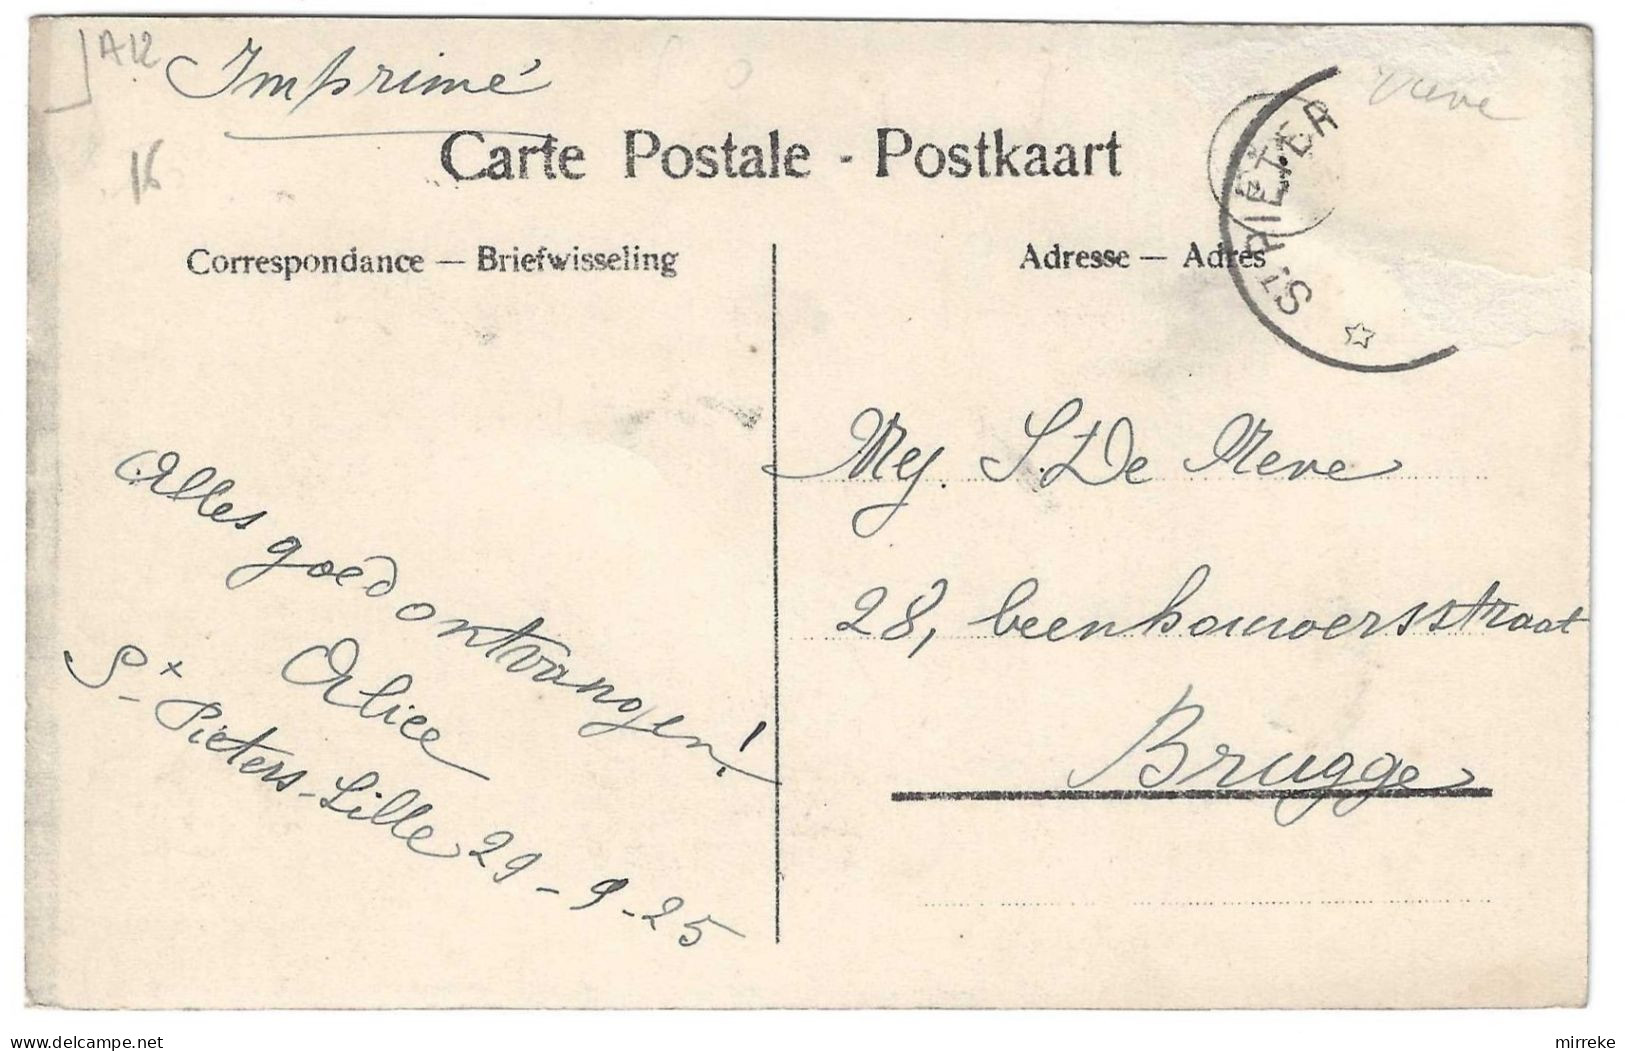 A12
16
Imprimé
Carte Postale - Postkaart
Correspondance — Briefwisseling
Adresse — Adres
ST PIETER
Alles goed ontvangen!
Alice
St Pieters-Lille 29-9-25
Mej. S. De Meve
28, beenhouwersstraat
Brugge
delcampe.net
mirreke